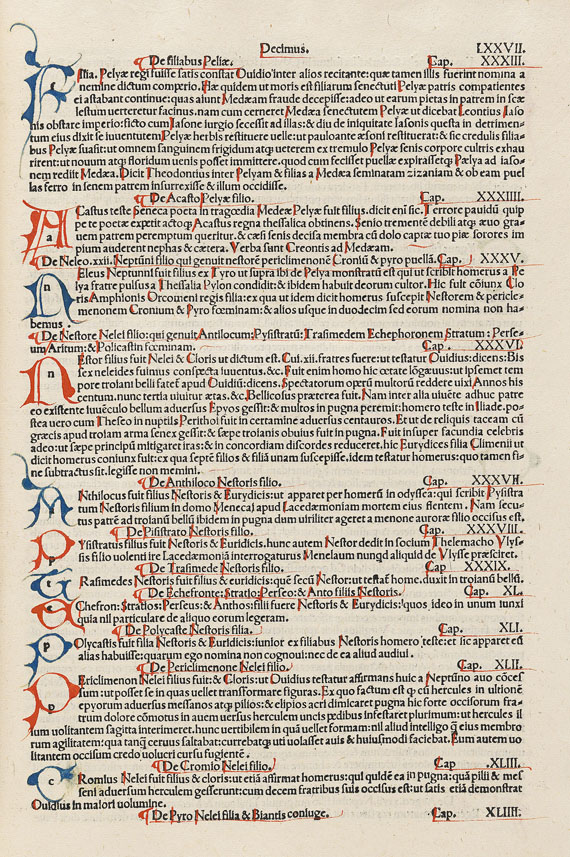 Decimus. LXXVII.
De filiabus Peliæ. Cap. XXXIII.
Filia. Pelyæ regi fuisse satis constat Ouidio inter alios recitante: quæ tamen illis fuerint nomina a
nemine dictum comperio. Hæ quidem ut moris est filiarum senectuti Pelyæ patris compatientes
ei astabant continue: quas aiunt Medæam fraude decepisse: adeo ut earum pietas in patrem in scæ
lestum uerteretur facinus. nam cum cerneret Medæa senectutem Pelyæ ut dicebat Leontius Iaso
nis obstare imperio: ficto cum Iasone iurgio secessit ad illas: & diu de iniquitate Iasonis questa in detrimen-
tum eius dixit se iuuentutem Pelyæ herbis restituere uelle: ut paulo ante æsoni restituerat: & sic credulis filia-
bus Pelyæ suasit: ut omnem sanguinem frigidum atque ueterem ex tremulo Pelyæ senis corpore cultris exhau
rirent: ut nouum atque floridum uenis posset immittere. quod cum fecisset puellæ expirassetque Pælya ad iaso-
nem rediit Medæa. Dicit Theodontius inter Pelyam & filias a Medæa seminatam zizaniam & ob eam puel
las ferro in senem patrem insurrexisse & illum occidisse.
De Acasto Pelyæ filio. Cap. XXXIIII.
ACastus teste Seneca poeta in tragoedia Medeæ Pelyæ fuit filius. dicit eni sic. Terrore pauidũ quip
pe te poetæ expetit acto que Acastus regna thessalica obtinens. Senio tremente debili atque æuo gra-
uem patrem peremptum queritur. & cæsi senis decisa membra cũ dolo captæ tuo piæ sorores im
pium auderent nephas & cætera. Verba sunt Creontis ad Medæam.
De Neleo. xxii. Neptũni filio qui genuit nestorẽ periclimenonẽ Croniũ & pyro puellã. Cap. XXXV.
NEleus Neptunni fuit filius ex Tyro ut supra ibi de Pelya monstratũ est qui ut scribit homerus a Pe
lya fratre pulsus a Thessalia Pylon condidit: & ibidem habuit deorum cultor. Hic fuit cõiunx Clo
ris Amphionis Orcomeni regis filia: ex qua ut idem dicit homerus suscepit Nestorem & pericle-
menonem Cronium & Pyro fœminam: & alios usque in duodecim sed eorum nomina non ha-
bemus.
De Nestore Nelei filio: qui genuit Antilocum: Pysistratũ: Trasimedem Echephoronem Stratum: Perse-
um Aritum: & Policastin fœminam. Cap. XXXVI.
NEstor filius fuit Nelei & Cloris ut dictum est. Cui. xii. fratres fuere: ut testatur Ouidius: dicens: Bis
sex neleides fuimus conspecta iuuentus. &c. Fuit enim homo hic œtate lõgæuus: ut ipsemet tem
pore troiani belli fatet apud Ouidiũ: dicens. Spectatorum operũ multorũ reddere uixi Annos bis
centum. nunc tertia uiuitur ætas. &c. Bellicosus præterea fuit. Nam inter alia uiuẽte adhuc patre
eo existente iuuẽculo bellum aduersus Epyos gessit: & multos in pugna peremit: homero teste in Iliade. po-
stea uero cum Theseo in nuptiis Perithoi fuit in certamine aduersus centauros. Et ut de reliquis taceam cũ
græcis apud troiam arma senex gessit: & sæpe troianis obuius fuit in pugna. Fuit insuper facundia celebris
adeo: ut sæpe principũ mitigaret iras: & in concordiam discordes reduceret. hic Eurydices filia Climenii ut
dicit homerus coniunx fuit: ex qua septẽ filios & filiã unam suscepisse. idem testatur homerus: quo tamen fi-
ne subtractus sit. legisse non memini.
De Anthiloco Nestoris filio. Cap. XXXVII.
ANthilocus fuit filius Nestoris & Eurydicis: ut apparet per homerũ in odyssea: qui scribit Pysistra
tum Nestoris filium in domo Menecaj apud Lacedæmoniam mortem eius flentem. Nam secu-
tus patrẽ ad troianũ bellũ ibidem in pugna dum uiriliter ageret a menone auroræ filio occisus est.
De Pisistrato Nestoris filio. Cap. XXXVIII.
PYsistratus filius fuit Nestoris & Euridicis. hunc autem Nestor dedit in socium Thelemacho Vlys-
sis filio uolenti ire Lacedæmoniã interrogaturus Menelaum nunqd aliquid de Vlysse præsciret.
De Trasimede Nestoris filio. Cap. XXXIX.
TRasimedes Nestoris fuit filius & euridicis: quẽ secũ Nestor: ut testat home. duxit in troianũ bellũ.
De Echefronte: Stratio: Perseo: & Anto filiis Nestoris. Cap. XL.
AChefron: Stratios: Perseus: & Anthos: filii fuere Nestoris & Eurydicis: quos ideo in unum iunxi
quia nil particulare de aliquo eorum legeram.
De Polycaste Nestoris filia. Cap. XLI.
POlycastis fuit filia Nestoris & Euridicis: iunior ex filiabus Nestoris homero teste: et sic apparet eũ
alias habuisse: quarum ego nomina non cognoui: nec de ea aliud audiui.
De Periclimenone Nelei filio. Cap. XLII.
PEriclimenon Nelei filius fuit: & Cloris: ut Ouidius testatur affirmans huic a Neptũno auo cõces
sum: ut posset se in quas uellet transformare figuras. Ex quo factum est que cũ hercules in ultionẽ
epyorum aduersus messanos atque pilios: & elipios acri dimicaret pugna hic forte occisorum fra-
trum dolore cõmotus in auem uersus herculem uncis pedibus infestaret plurimum: ut hercules il
lum uolitantem sagitta interimeret. hunc uertibilem in quã uellet formam: nil aliud intelligo que eius membro
rum agilitatem: qua tanque ceruus saltabat: currebatque uti uolasset auis & huiusmodi faciebat. Eum autem uo
litantem occisum credo uolucri cursu fugientẽ.
De Cromio Nelei filio. Cap. XLIII.
CRomius Nelei fuit filius & cloris: ut etiã affirmat homerus: qui quidẽ ea in pugna: quã pilii & mes
seni aduersum herculem gesserunt: cum decem fratribus suis occisus est: ut satis etiã demonstrat
Ouidius in maiori uolumine.
De Pyro Nelei filia & Biantis coniuge. Cap. XLIIII.